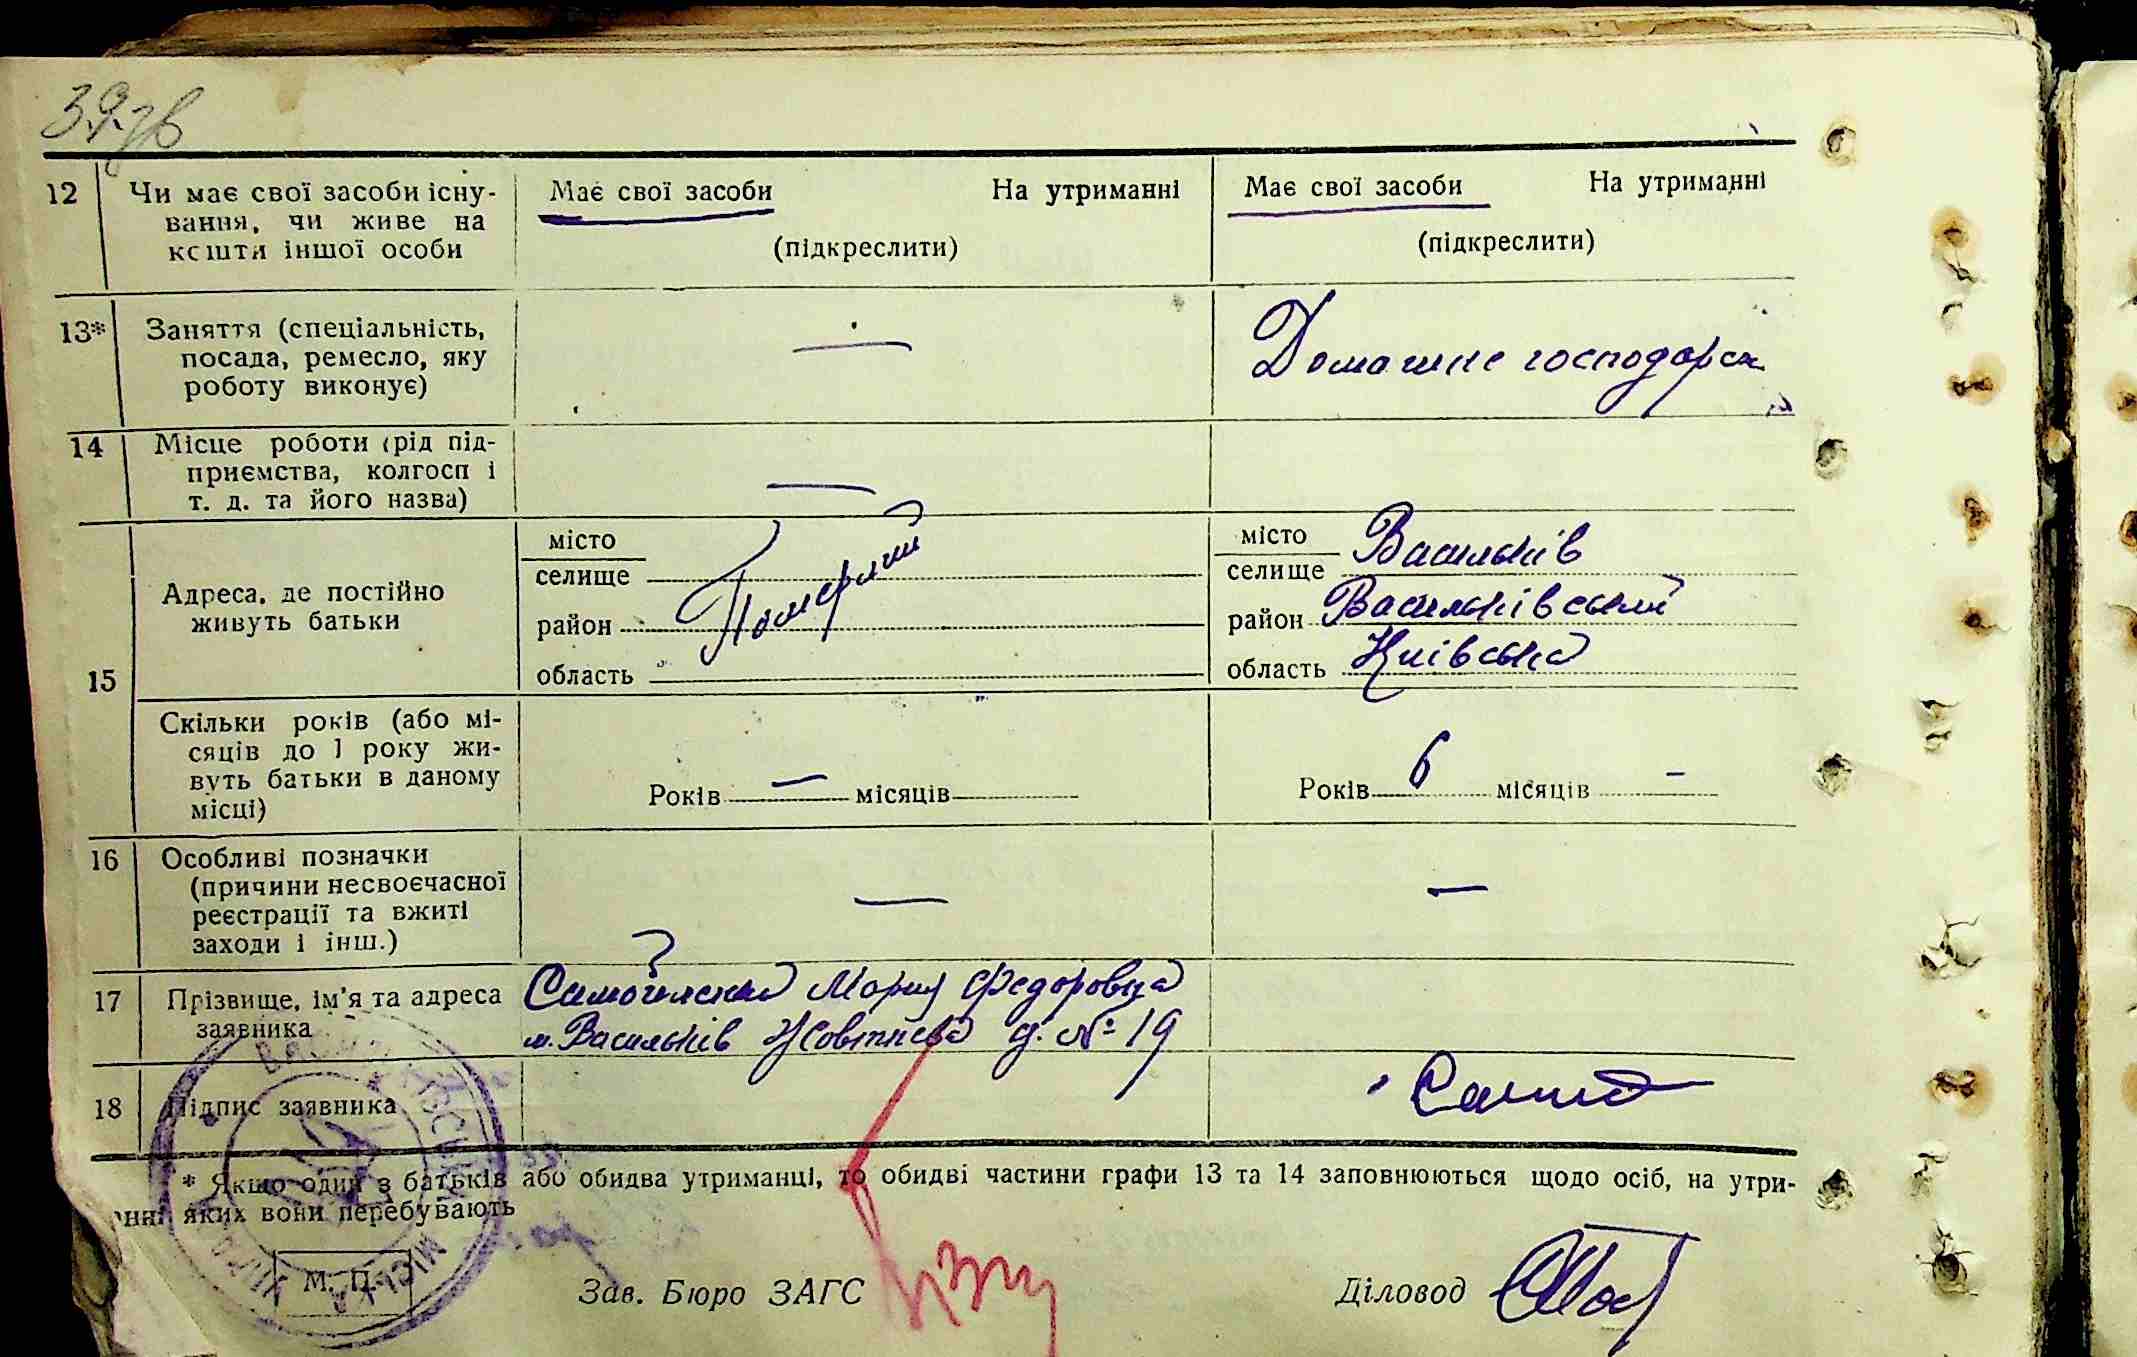 39 зв
12 Чи має свої засоби існу- Має свої засоби На утриманні Має свої засоби На утриманні
вання, чи живе на
кошти іншої особи (підкреслити) (підкреслити)
13* Заняття (спеціальність, Домашне господарс
посада, ремесло, яку
роботу виконує)
14 Місце роботи (рід під-
приємства, колгосп і
т. д. та його назва)
15 Адреса, де постійно
живуть батьки
місто
селище
район
область
Померлий
місто Васильків
селище
район Васильківський
область Київська
Скільки років (або мі-
сяців до 1 року жи-
вуть батьки в даному
місці)
Років — місяців Років 6 місяців —
16 Особливі позначки — —
(причини несвоєчасної
реєстрації та вжиті
заходи і інш.)
17 Прізвище, ім'я та адреса Мария Федоровна
заявника м. Васильків Жовтнева д. № 19
18 Підпис заявника
* Якщо один з батьків або обидва утриманці, то обидві частини графи 13 та 14 заповнюються щодо осіб, на утри-
анні яких вони перебувають
М. П. Зав. Бюро ЗАГС Діловод